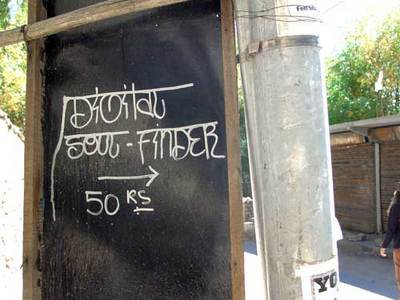 SOUL - FINDER
→
50 RS
YO